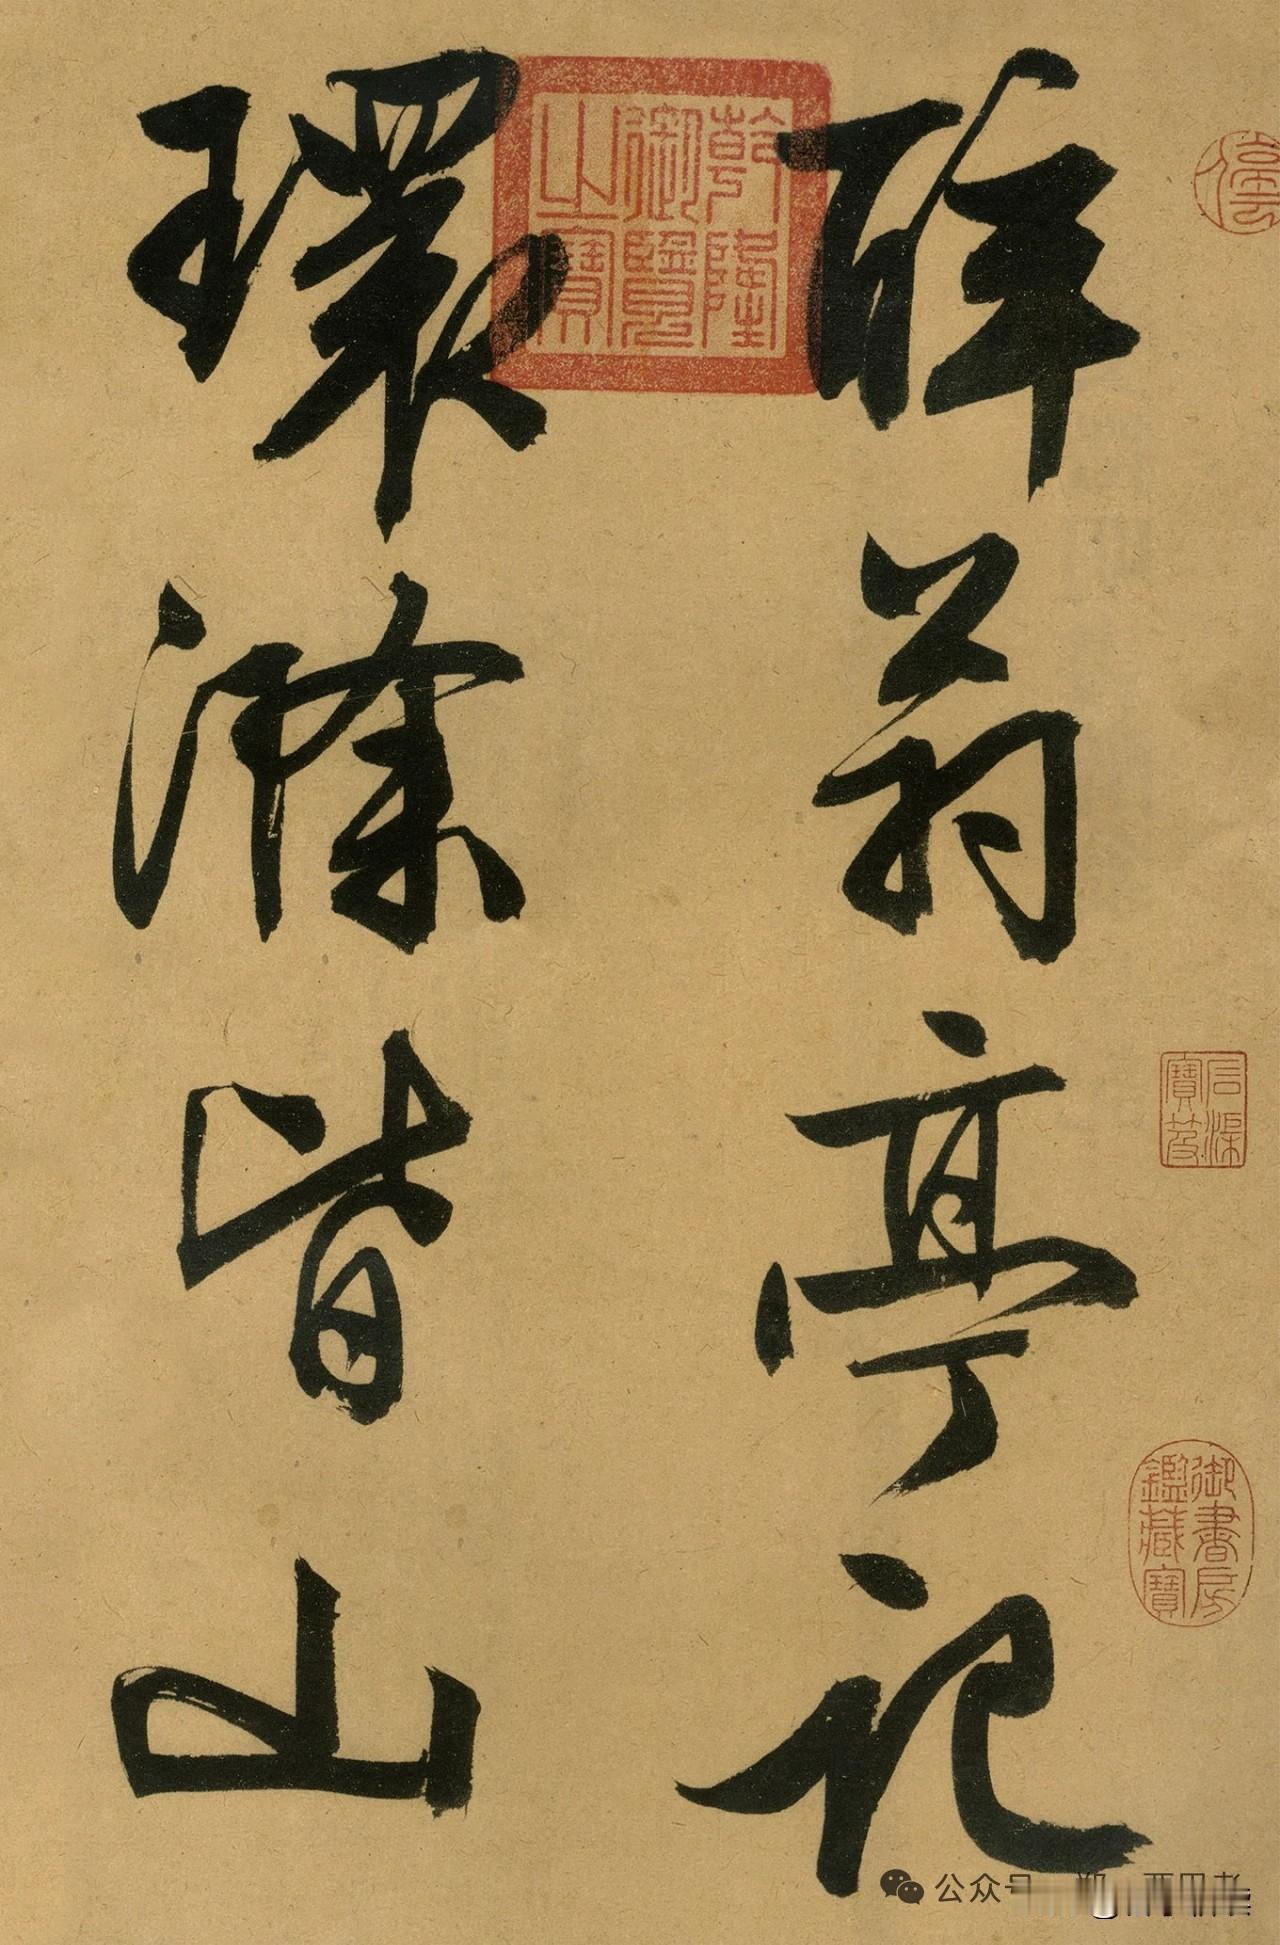 醉翁亭記
環滁皆山
乾隆
御覽
之寶
石渠
寶笈
御書房
鑑藏寶
公众号